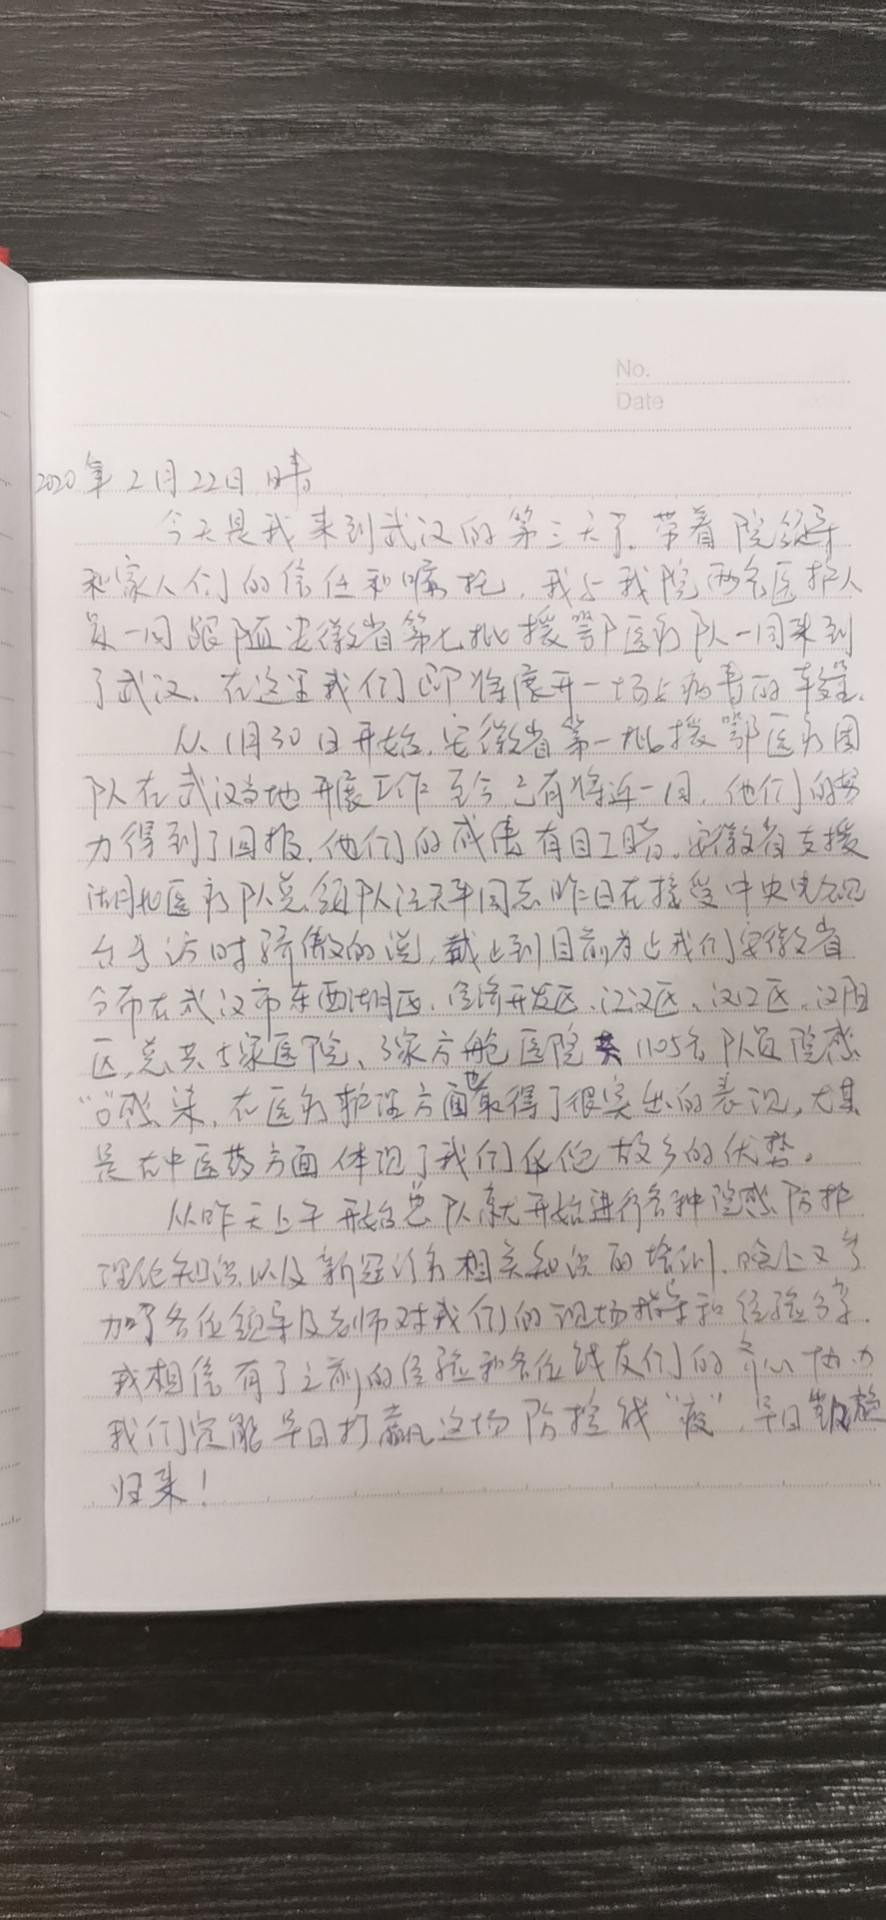 No.
Date
2020年2月22日 晴
今天是我来到武汉的第三天了，带着院领导
和家人们的信任和嘱托，我与我院两名医护人
员一同跟随安徽省第七批援鄂医疗队一同来到
了武汉，在这里我们即将展开一场与病毒的较量。
从1月30日开始，安徽省第一批援鄂医疗团
队在武汉当地开展工作至今已有将近一月，他们的努
力得到了回报，他们的成绩有目共睹。安徽省支援
湖北医疗队总领队汪天平同志昨日在接受中央电视
台专访时骄傲的说，截止到目前为止我们安徽省
分布在武汉市东西湖区、经济开发区、江汉区、汉口区、汉阳
区，总共5家医院、3家方舱医院共1105名队员院感
"0"感染，在医疗护理方面也取得了很突出的表现，尤其
是在中医药方面体现了我们华佗故乡的优势。
从昨天上午开始总队就开始进行各种院感防护
理论知识以及新冠诊疗相关知识的培训，晚上又参
加了各位领导及老师对我们的现场指导和经验分享，
我相信有了之前的经验和各位战友们的齐心协力
我们定能早日打赢这场防控战"疫"，早日凯旋
归来！